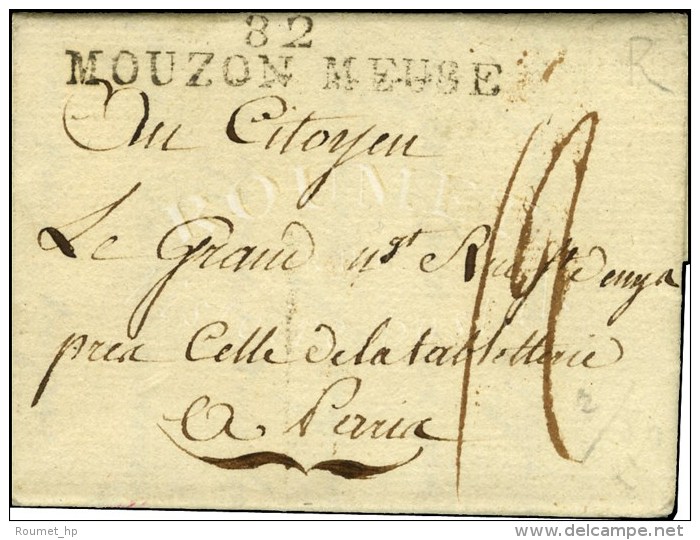 82
MOUZON MEUSE
R
Au Citoyen
ROUMET
Le Grand nst Rue St Denys
pres Celle de la tabletterie
A Paris
Roumet_hp
delcampe.net